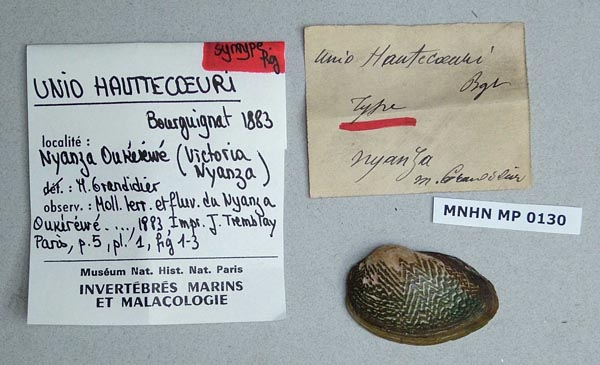 syntype
fig
UNIO HAUTTECŒURI
Bourguignat 1883
localité :
Nyanza Oukéréwé (Victoria
Nyanza)
dét. : M. Grandidier
observ. : Moll. terr. et fluv. du Nyanza
Oukéréwé ..., 1883 Impr. J. Tremblay
Paris, p. 5, pl. 1, fig 1-3
Muséum Nat. Hist. Nat. Paris
INVERTÉBRÉS MARINS
ET MALAÇOLOGIE
Unio Hauttecœuri
Bgt
Type
Nyanza
M. Grandidier
MNHN MP 0130